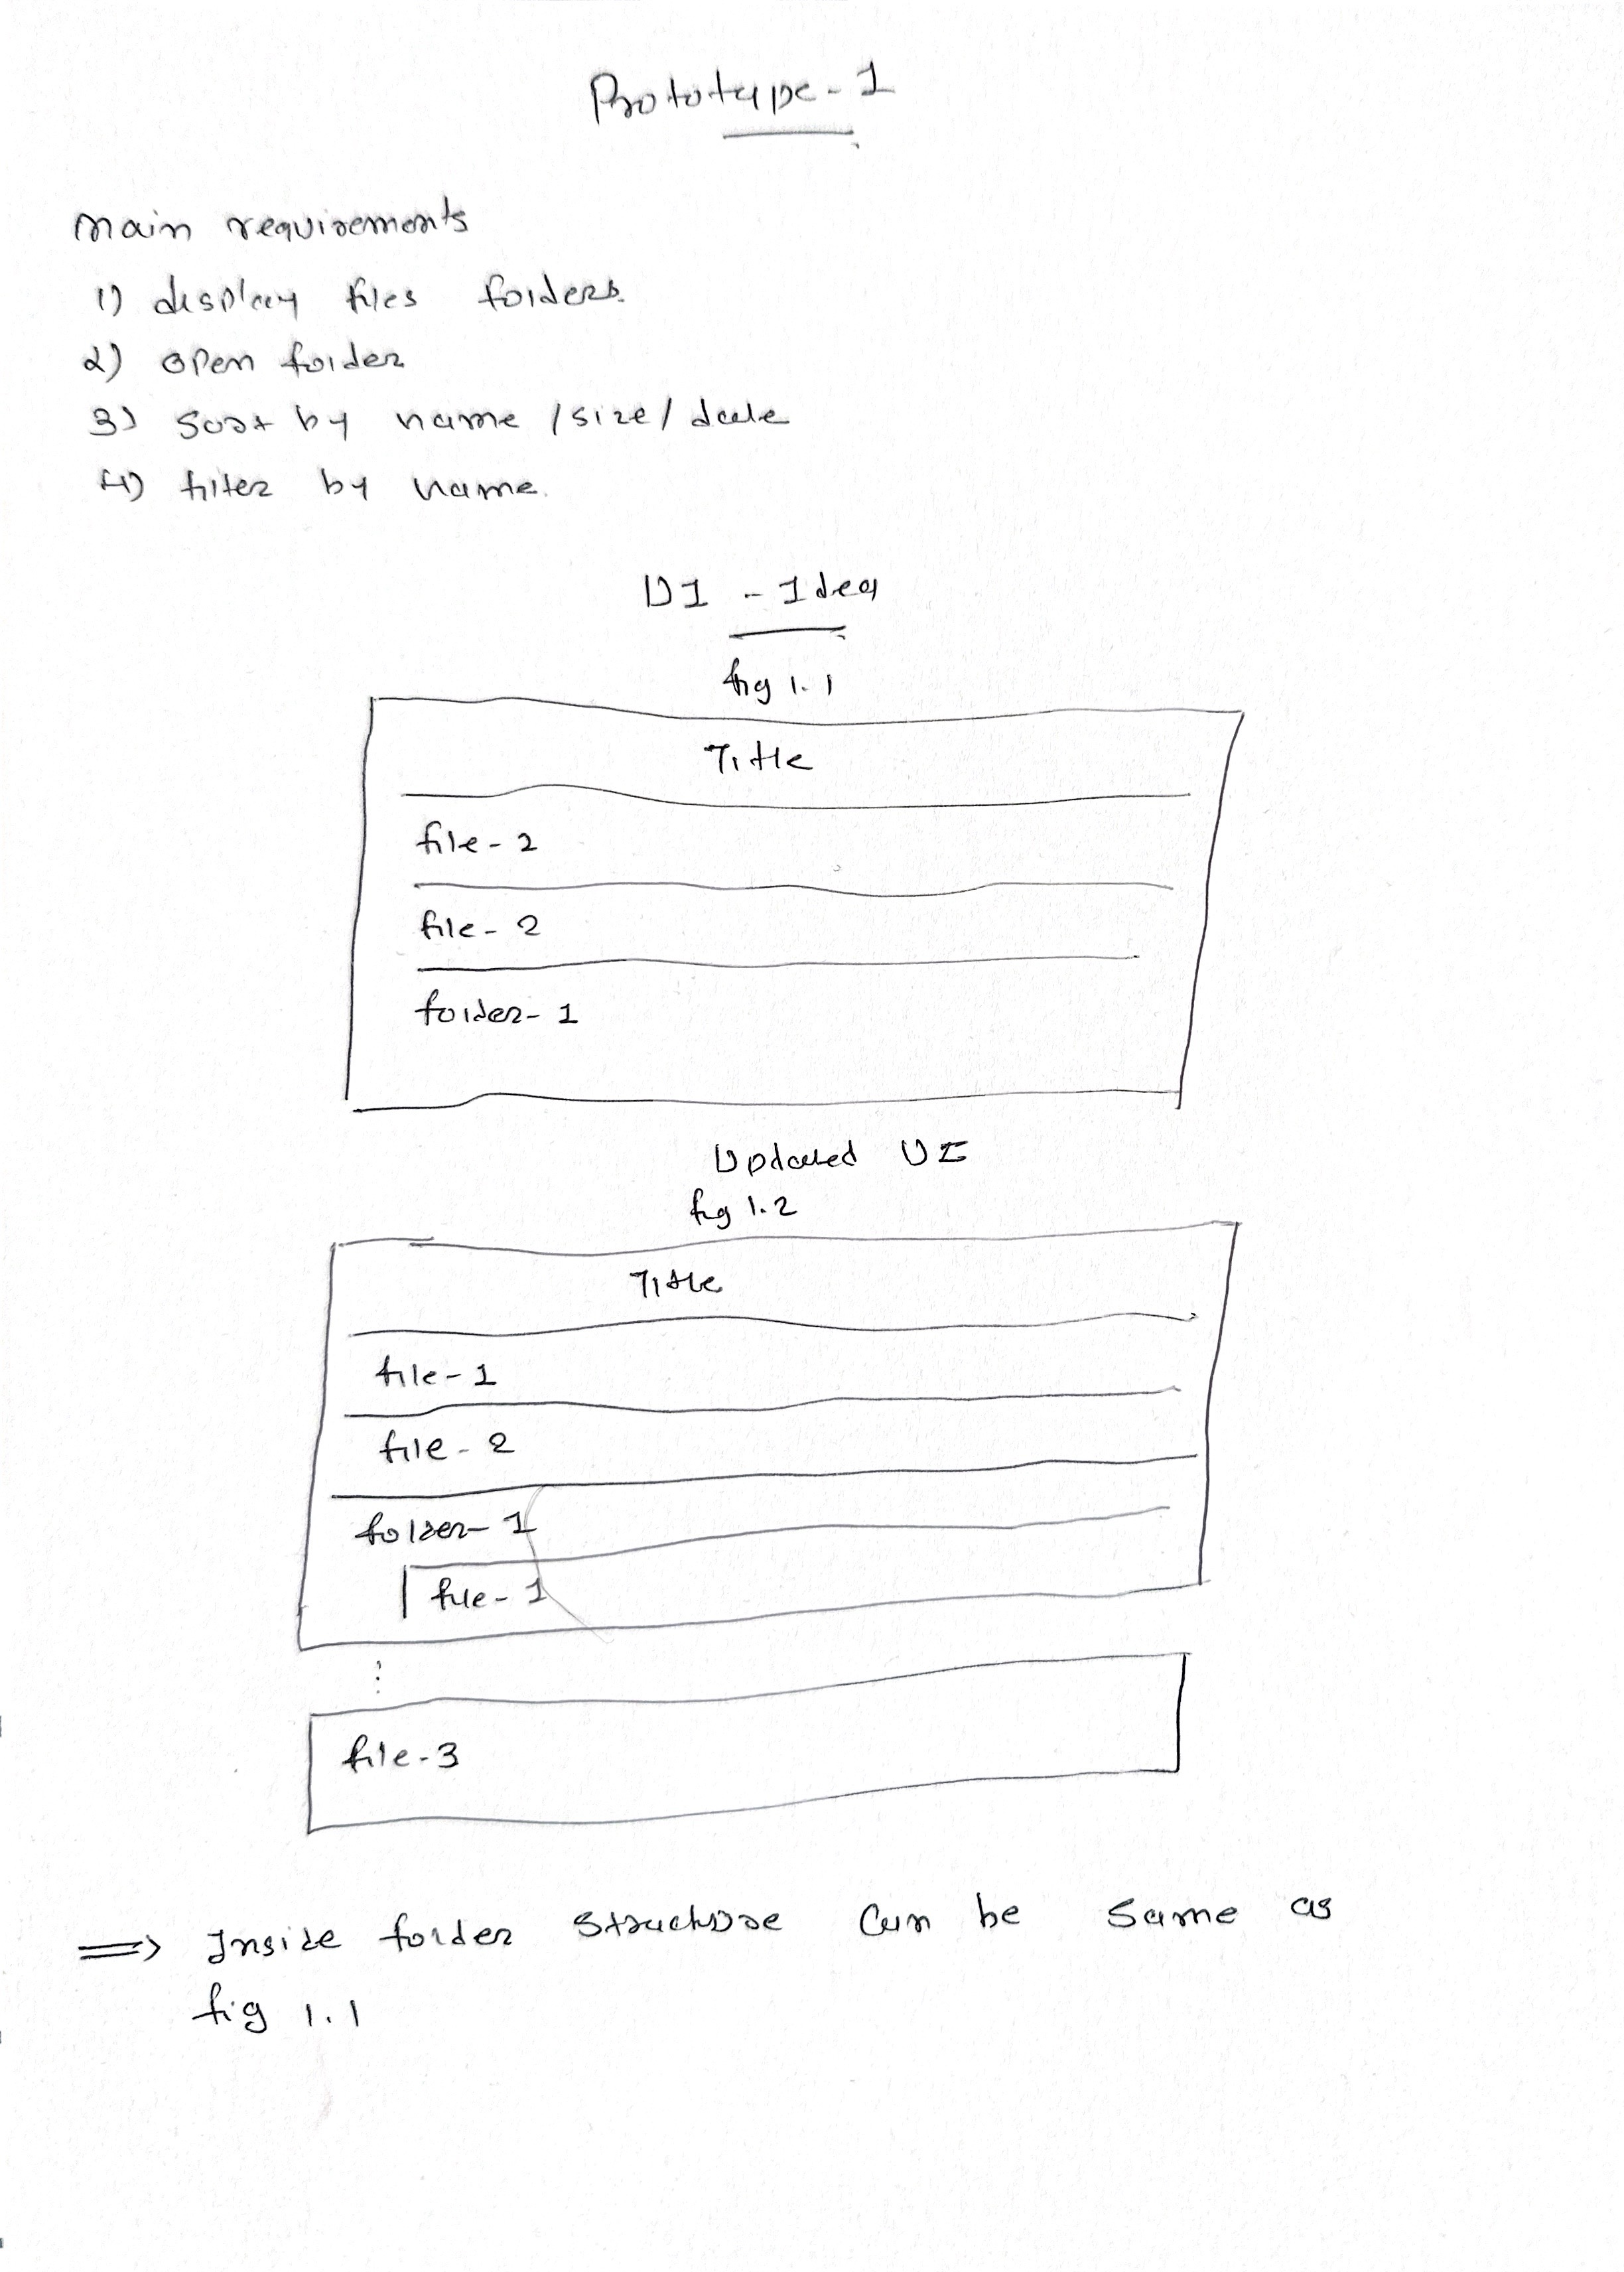 Prototype-1
main requirements
1) display files folders.
2) open folder
3) sort by name /size/ date
4) filter by name.
UI - Idea
fig 1.1
Title
file-2
file-2
folder-1
Updated UI
fig 1.2
Title
file-1
file-2
folder-1
file-1
file-3
⟹ Inside folder structure can be same as
fig 1.1